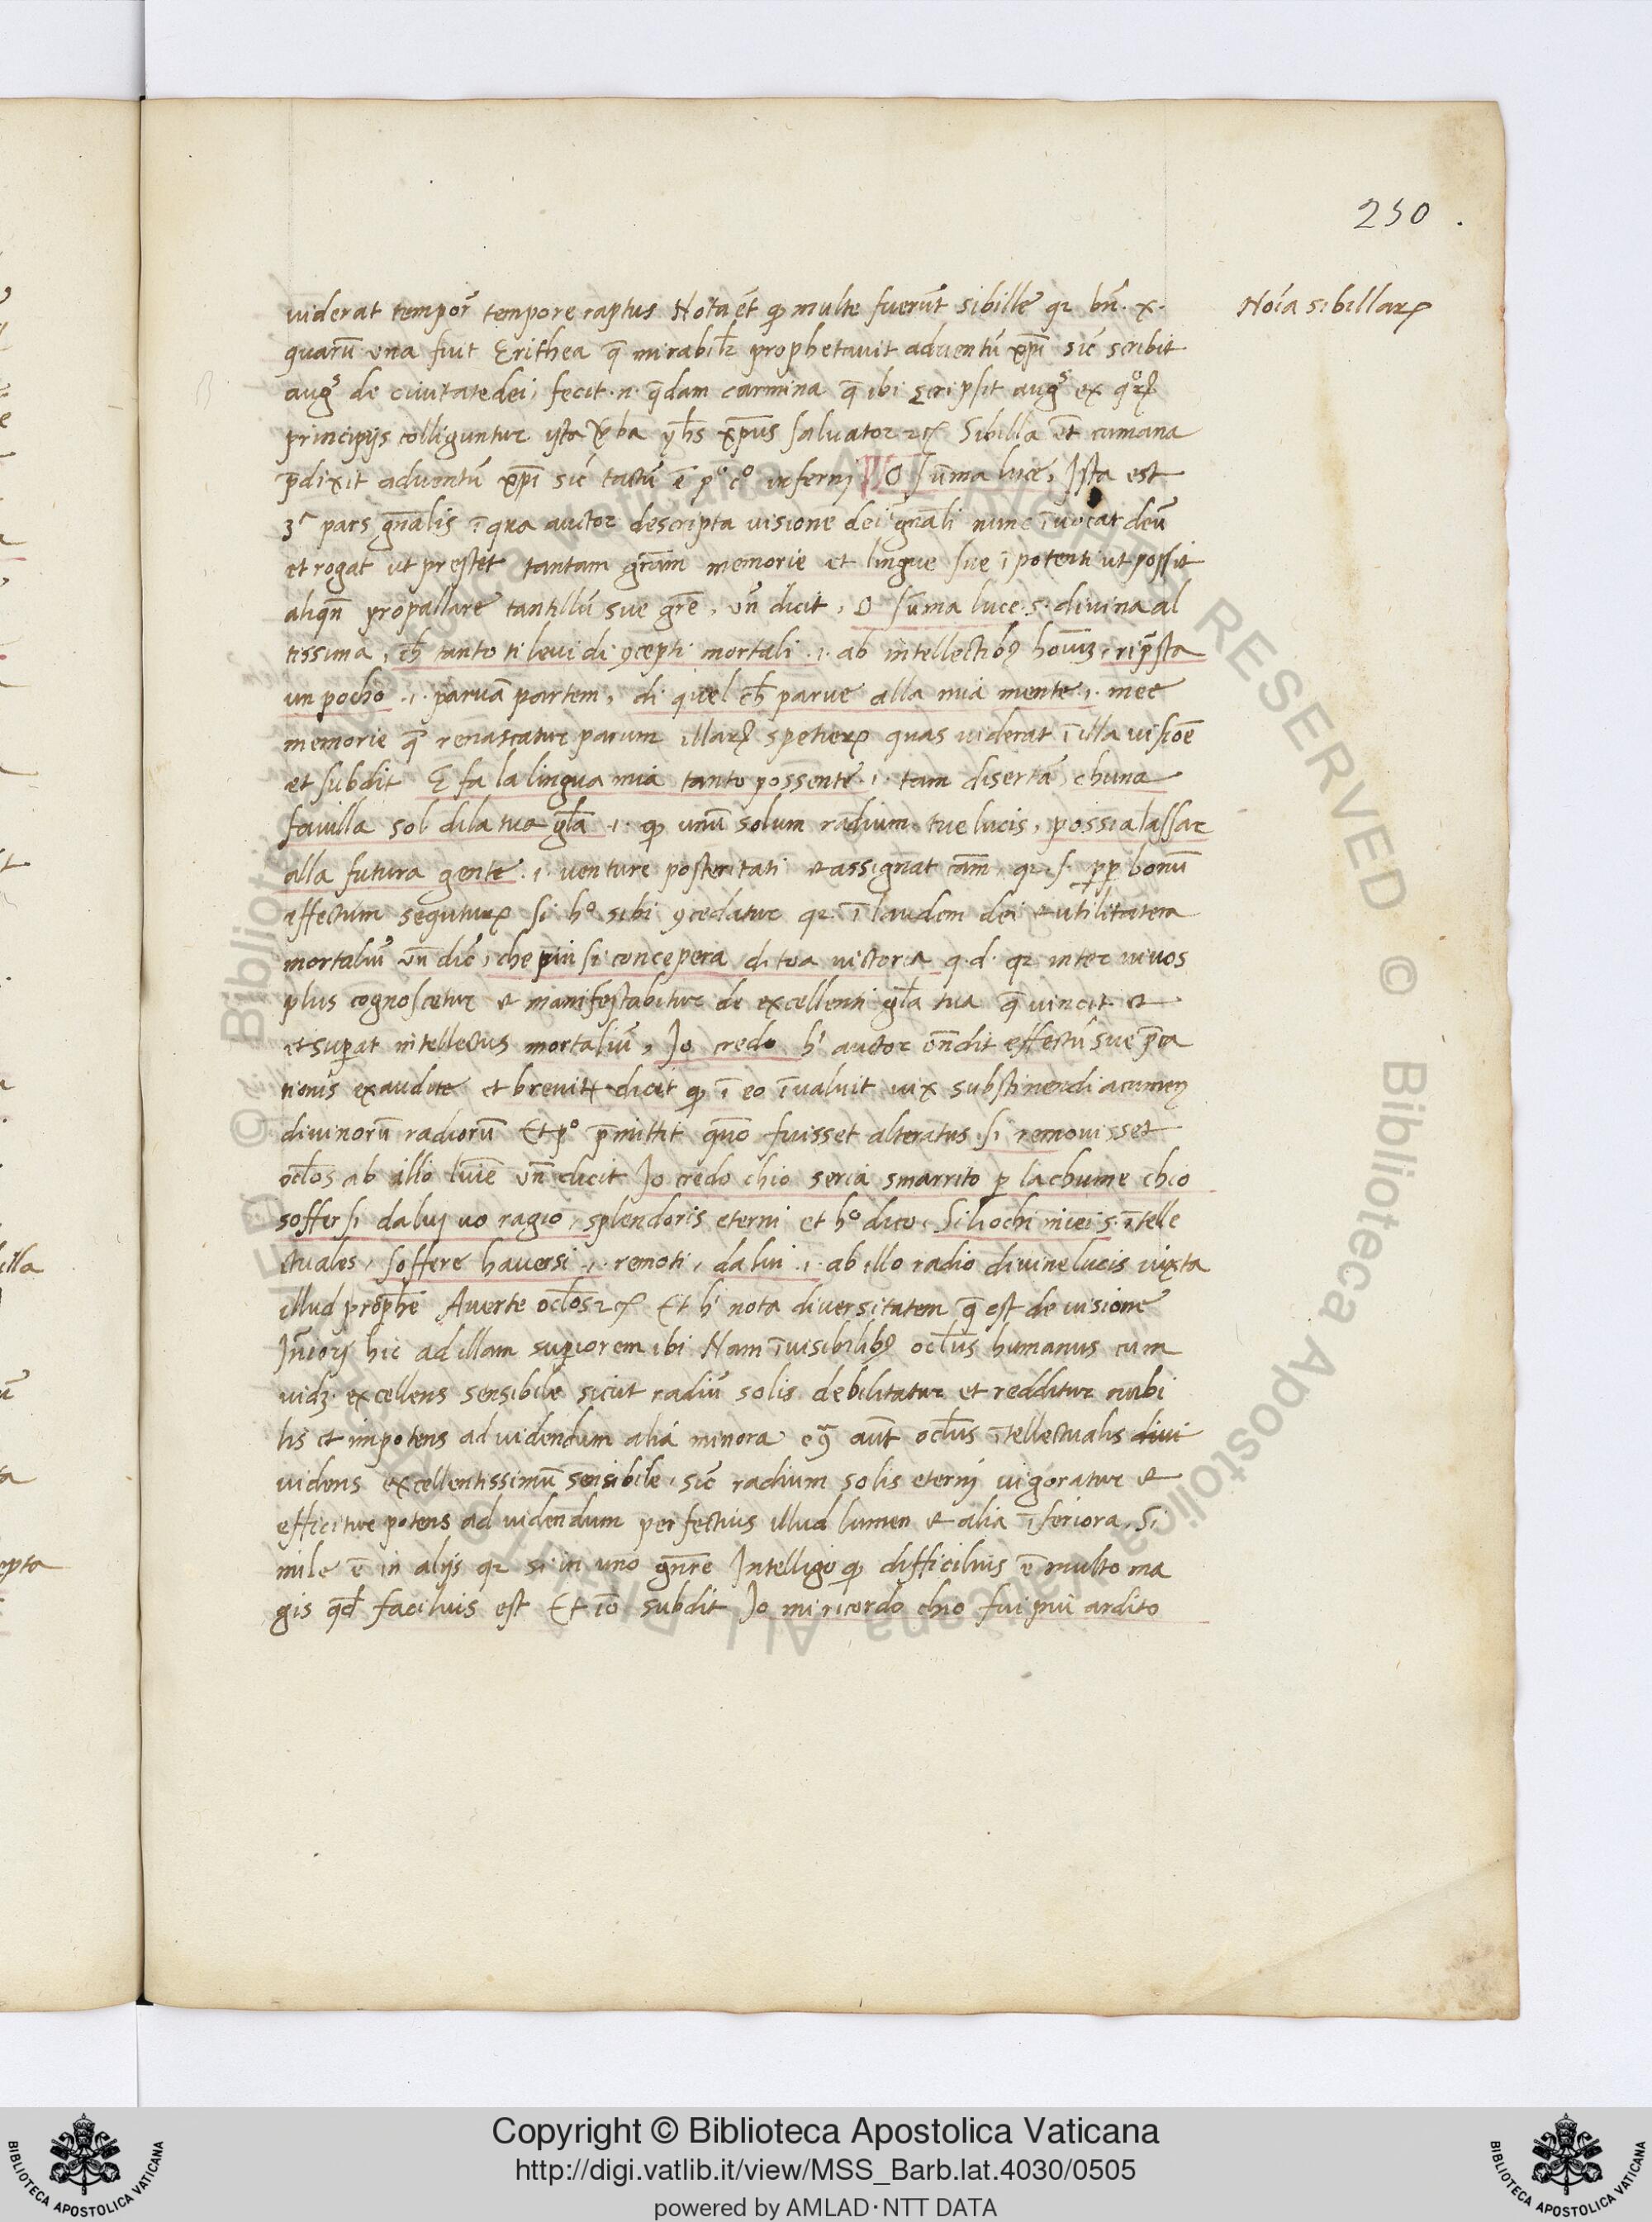 250.
viderat tempor̄ tempore raptus. Nota ēt ꝙ multe fuerūt sibille qꝛ bn̄. x.
Noīa sibillaꝝ
quarū una fuit Erithea q̄ mirabilr̄ prophetavit adventū xp̄i sic̄ scribit
augꝰ de civitate dei, fecit .n. q̄dam carmina q̄ ibi scripsit augꝰ ex qͦꝝ
principijs colliguntur ista v̄ba yh̄s xp̄us salvator ⁊c̄ Sibilla ēt cumana
p̄dixit adventū xp̄i sic̄ tactū ē pͦ cͦ inferni ¶ O sūma luce, Ista est
3ᵃ pars gn̄alis ī qua auctor descripta visione dei gn̄ali nunc īvocat deū
et rogat ut prestet tantam grām memorie et lingue sue īpotenti ut possit
aliqn̄ propallare tantillū sue grē, un̄ dicit, O sūma luce .s. divina al
tissima, ch̄ tanto ti levi di ꝯcepti mortali .i. ab intellectibꝰ hoīuꝫ, rip̄sta
un pocho .i. parvā partem, di quel ch̄ parve alla mia mente .i. mee
memorie q̄ renascatur parum illaꝝ spetieꝝ quas viderat ī illa visiōe
et subdit E fa la lingua mia tanto possente .i. tam disertā, chuna
favilla sol di la tua gl̄a .i. ꝙ unū solum radium tue lucis, possia lassar
alla futura gente .i. venture posteritati et assignat cām, qꝛ .s. ꝓp bonū
effectum seguturꝝ si hͦ sibi ꝯcedatur qꝛ ī laudem dei et utilitatem
mortaliū un̄ dic̄, che piu si concepera di tua victoria q.d. qꝛ inter vivos
plus cognoscetur et manifestabitur de excellenti gl̄a tua q̄ vincit et
et suꝑat intellectus mortaliū, Io credo hⁱ auctor on̄dit effectū sue p̄ca
tionis exaudite et brevitr̄ dicit ꝙ ī eo īvaluit vix substinendi acumen
divinorū radiorū Et pͦ p̄mittit quō fuisset alteratus si removisset
ocl̄os ab illo luīe un̄ dicit Io credo chio seria smarrito ꝑ lachume chio
soffersi dalvj vo ragio, splendoris eterni et hͦ dico, Si li ochi miei .s. ītelle
ctuales, soffere haversi .i. remoti, da lui .i. ab illo radio divine lucis iuxta
illud prophē Averte ocl̄os ⁊c̄ Et hⁱ nota diversitatem q̄ est de visione
Īn̄iorj hic ad illam suꝑiorem ibi Nam ī visibilibꝰ ocl̄us humanus cum
videt excellens sensibile sicut radiū solis debilitatur et redditur nubi
lis et impotens ad videndum alia minora eꝯ aūt ocl̄us ītellectualis divi
videns excellentissimū sensibile, sic̄ radium solis eterni vigoratur et
efficitur potens ad videndum perfectius illud lumen et alia īferiora, Si
mile ē in alijs qꝛ si in uno gn̄re Intelligo ꝙ difficilius ē multo ma
gis qd̄ facilius est Et iō subdit Io mi ricordo chio fui piu ardito
Copyright © Biblioteca Apostolica Vaticana
http://digi.vatlib.it/view/MSS_Barb.lat.4030/0505
powered by AMLAD·NTT DATA
BIBLIOTECA APOSTOLICA VATICANA
BIBLIOTECA APOSTOLICA VATICANA